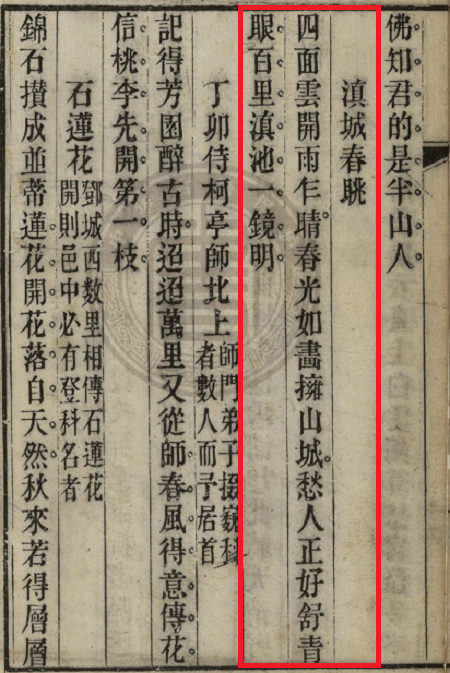 佛知君的是半山人
滇城春眺
四面雲開雨乍晴春光如畵擁山城愁人正好舒青
眼百里滇池一鏡明
丁卯侍柯亭師北上師門弟子掇巍科者數人而予居首
記得芳園醉古時迢迢萬里又從師春風得意傳花
信桃李先開第一枝
石蓮花鄧城西数里相傳石蓮花開則邑中必有登科名者
錦石攅成並蒂蓮花開花落自天然秋來若得層層